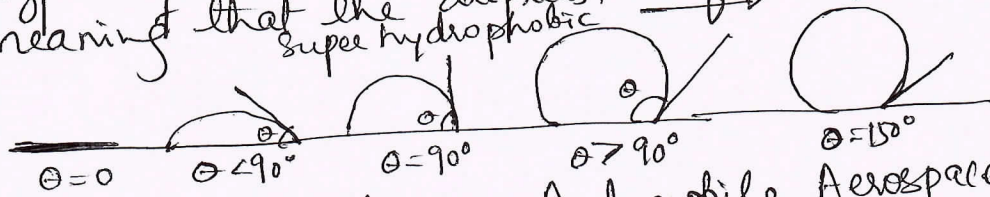 meaning that the
super hydrophobic
θ θ θ
θ = 0 θ < 90° θ = 90° θ > 90° θ = 150°
Aerospace